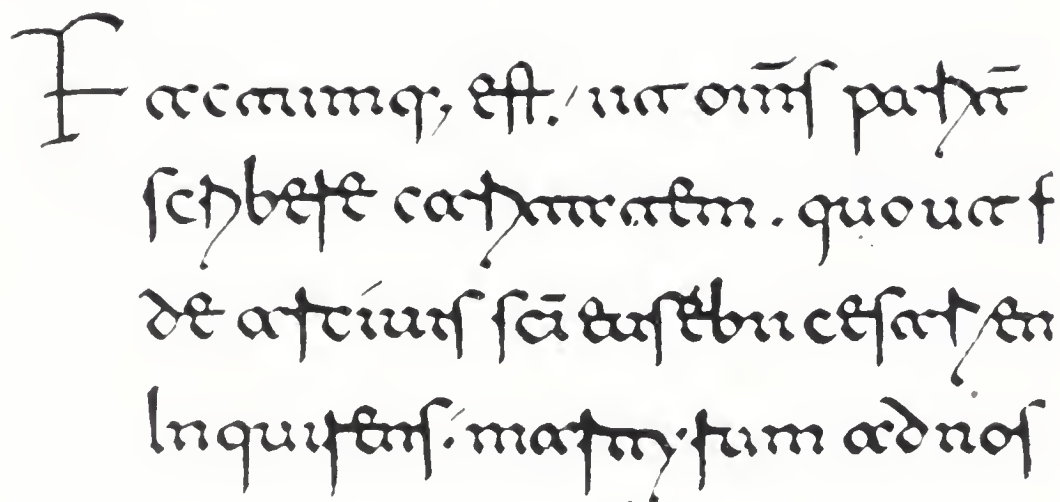 Factumq; est. ut om̄s parit̄
scribere caritatem. quo ut f
de arcivis sc̄i eusebii cesarien
Inquirens. martyrum ad nos